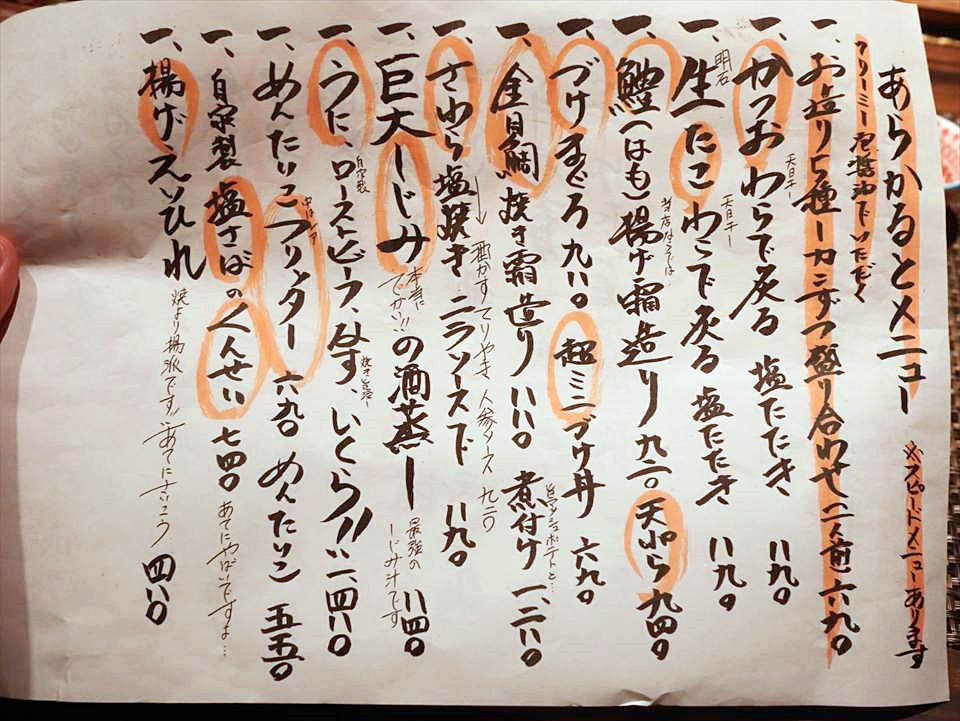 あらかるとメニュー
※スピードメニューあります
クリーミー泡醤油でいただく
一、お造り5種一カンずつ盛り合わせ(一人前)一六九〇
天日干し
一、かつおわらで炙る 塩たたき 一一九〇
明石
天日干し
一、生たこわらで炙る 塩たたき 一一九〇
一、鱧(はも)揚げ霜造り 九二〇 天ぷら 九四〇
一、づけまぐろ 九八〇 超ミニづけ丼 六九〇
一、金目鯛 焼き霜造り 一一八〇 煮付け 一、二八〇
一、さわら塩焼き ニラソースで 八九〇
てりやき 人参ソース 九二〇
一、巨大しじみの酒蒸し 一一四〇
本当にでかい!!
最強のしじみ汁です
自家製
一、うに、ローストビーフ、なす、いくら!! 一、四八〇
一、めんたいこフリッター 六九〇 めんたいこ 五五〇
中はレア
一、自家製 塩さばのくんせい 七四〇
あてにやばいですよ…
一、揚げえいひれ 四八〇
焼より揚派です!!あてにさいこう